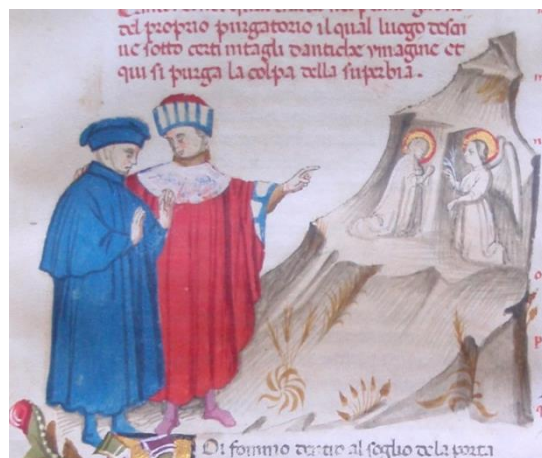 del proprio purgatorio il qual luogo descri
ue sotto certi intagli dantiche ymagine et
qui si purga la colpa della superbia.
Oi fommo dentro al soglio de la porta